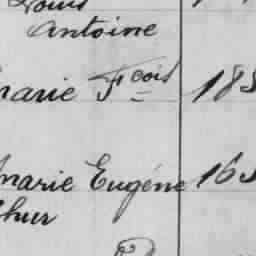 Louis
Antoine
marie Fcois 185
marie Eugéne 165
thur